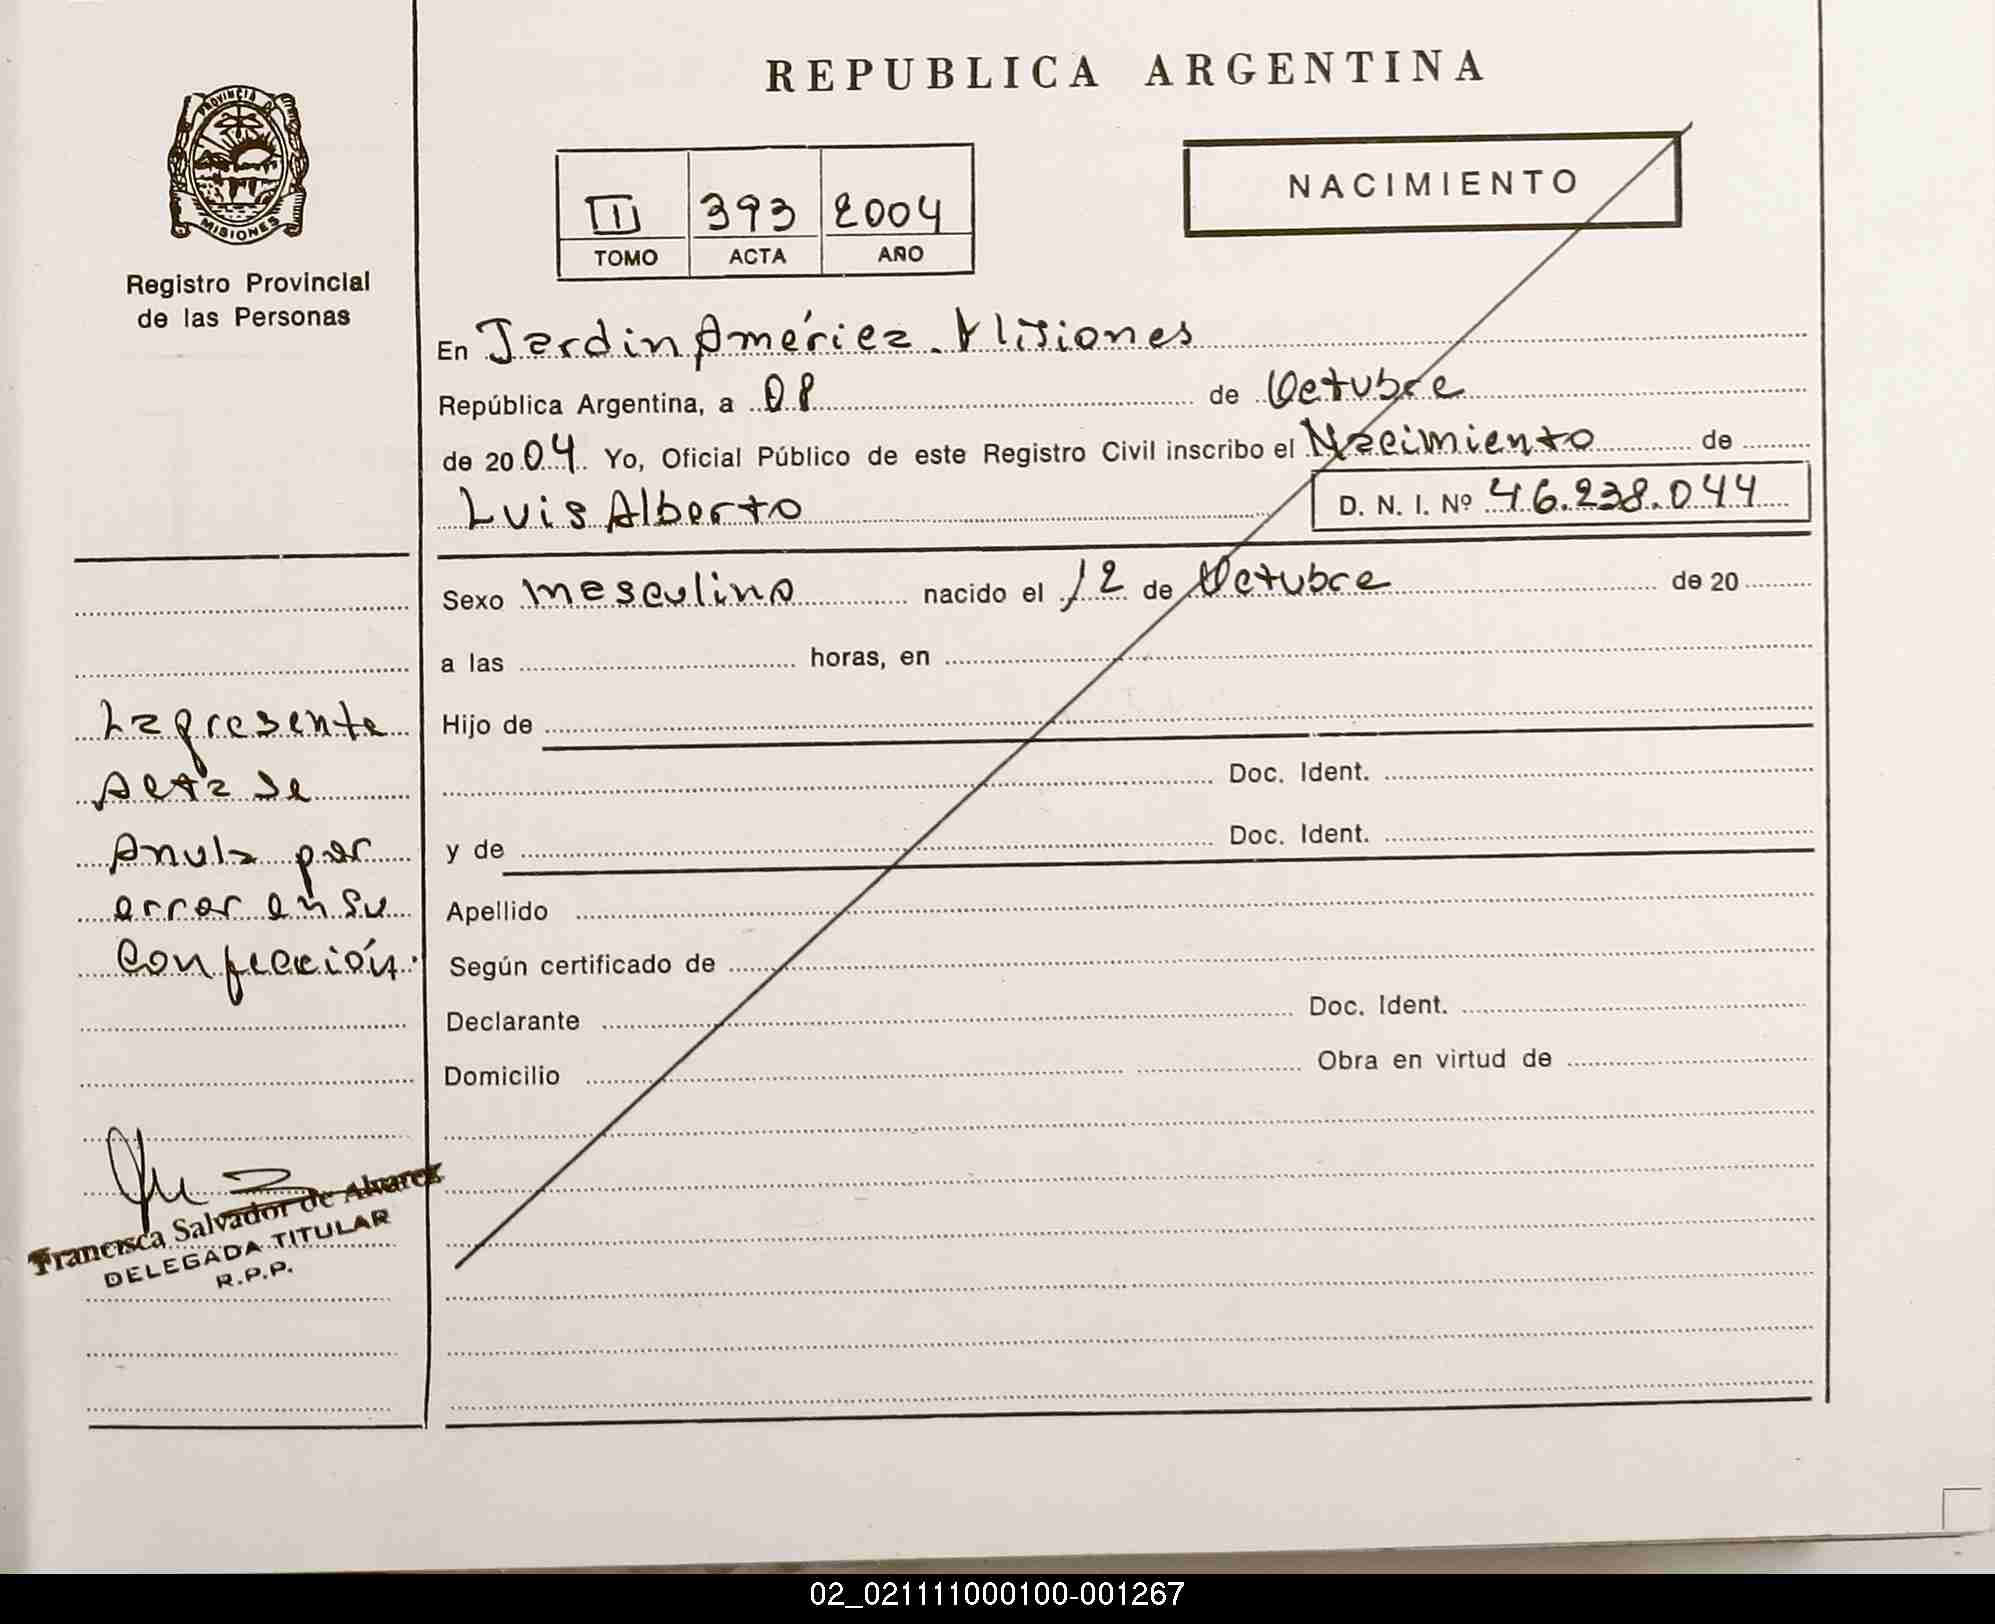 REPUBLICA ARGENTINA
PROVINCIA DE
MISIONES
Registro Provincial
de las Personas
II 393 2004
TOMO ACTA AÑO
NACIMIENTO
En Jardin América. Misiones
República Argentina, a 08 de Octubre
de 2004 Yo, Oficial Público de este Registro Civil inscribo el Nacimiento de
Luis Alberto D. N. I. Nº 46.238.044
Sexo masculino nacido el 12 de Octubre de 20
a las horas, en
Hijo de
Doc. Ident.
y de Doc. Ident.
Apellido
Según certificado de
Declarante Doc. Ident.
Domicilio Obra en virtud de
La presente
Acta se
Anula por
error en su
Confección.
Francisca Salvador de Alvarez
DELEGADA TITULAR
R.P.P.
02_021111000100-001267